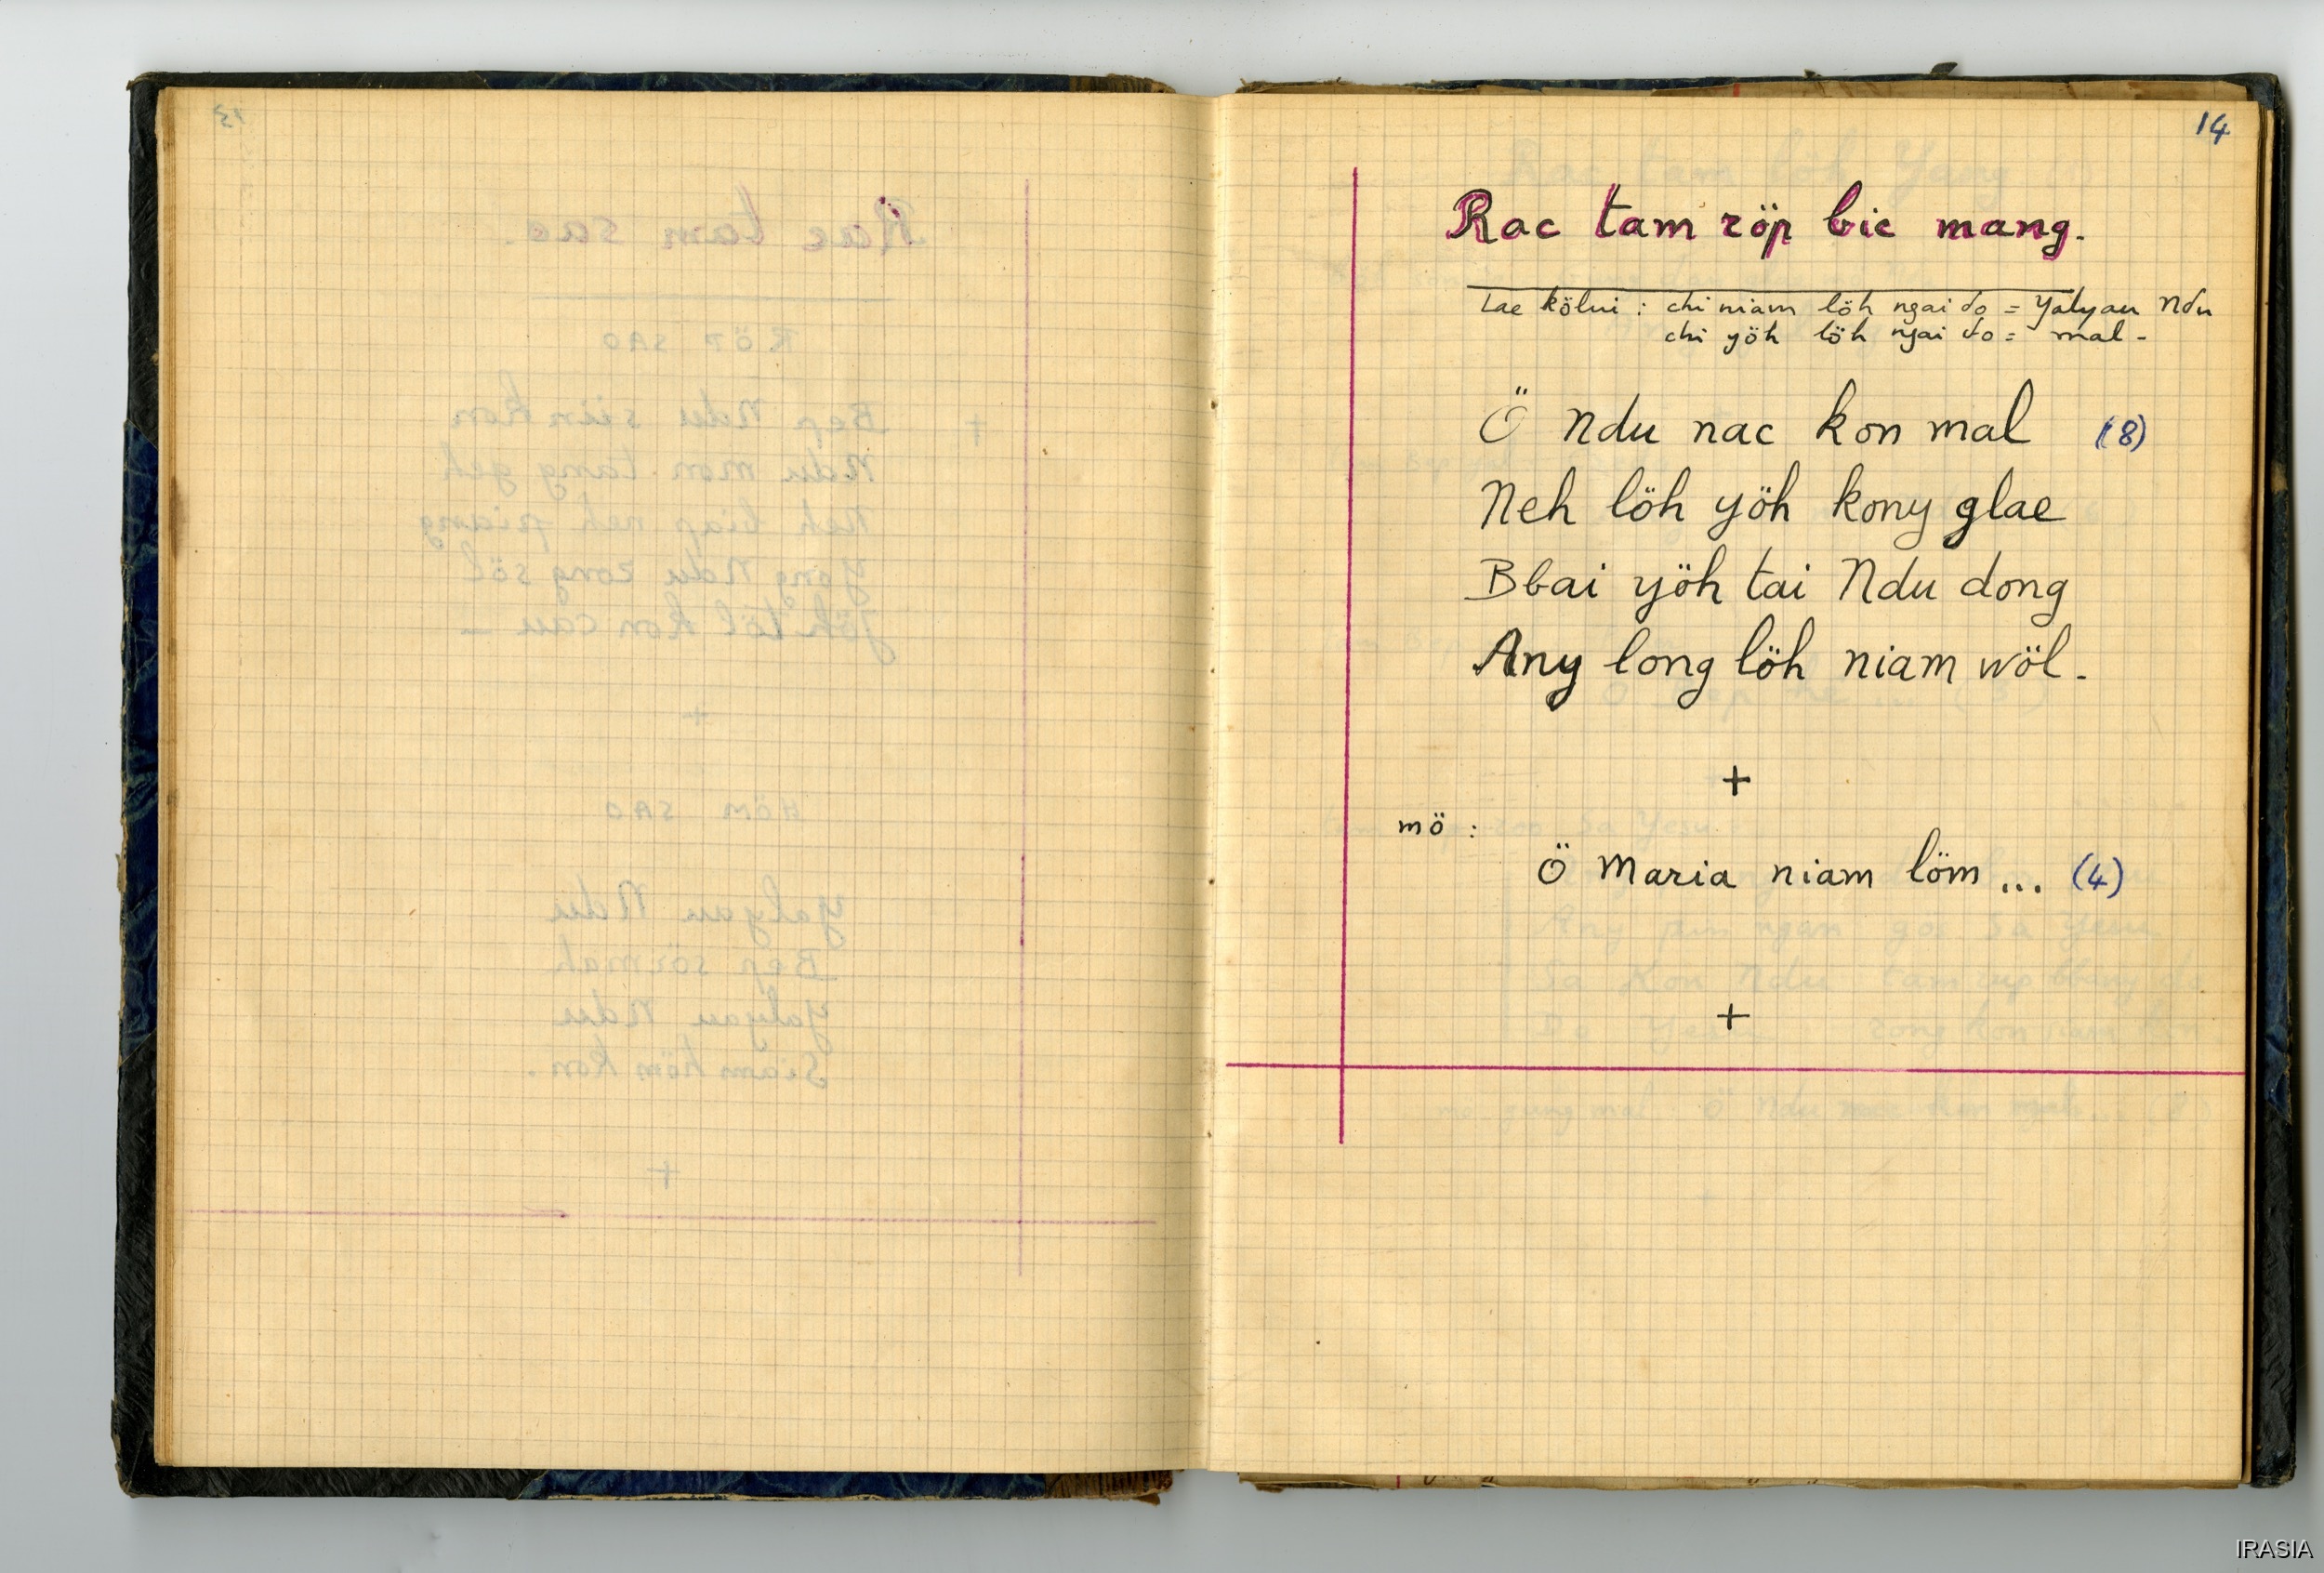 14
Rac tam röp bic mang.
Lae kölui : chi niam löh ngai do = Yalyau Ndu
chi yöh löh ngai do = mal -
Ö Ndu nac kon mal (8)
Neh löh yöh kony glae
Bbai yöh tai Ndu dong
Any long löh niam wöl.
+
mö :
Ö Maria niam löm ... (4)
+
IRASIA